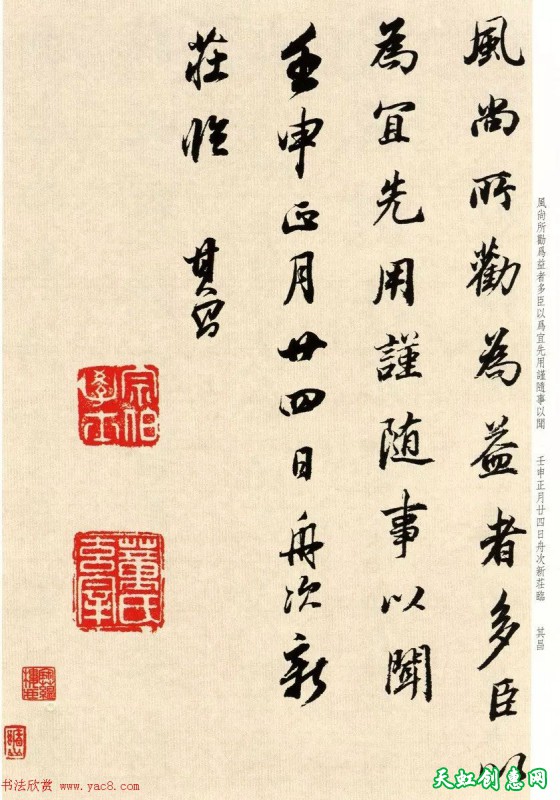 風尚所勸為益者多臣以
為宜先用謹随事以聞
壬申正月廿四日舟次新
莊臨 其昌
宗伯學士
董氏玄宰
風尚所勸爲益者多臣以爲宜先用謹隨事以聞 壬申正月廿四日舟次新莊臨 其昌
书法欣赏 www.yac8.com
天虹创意网